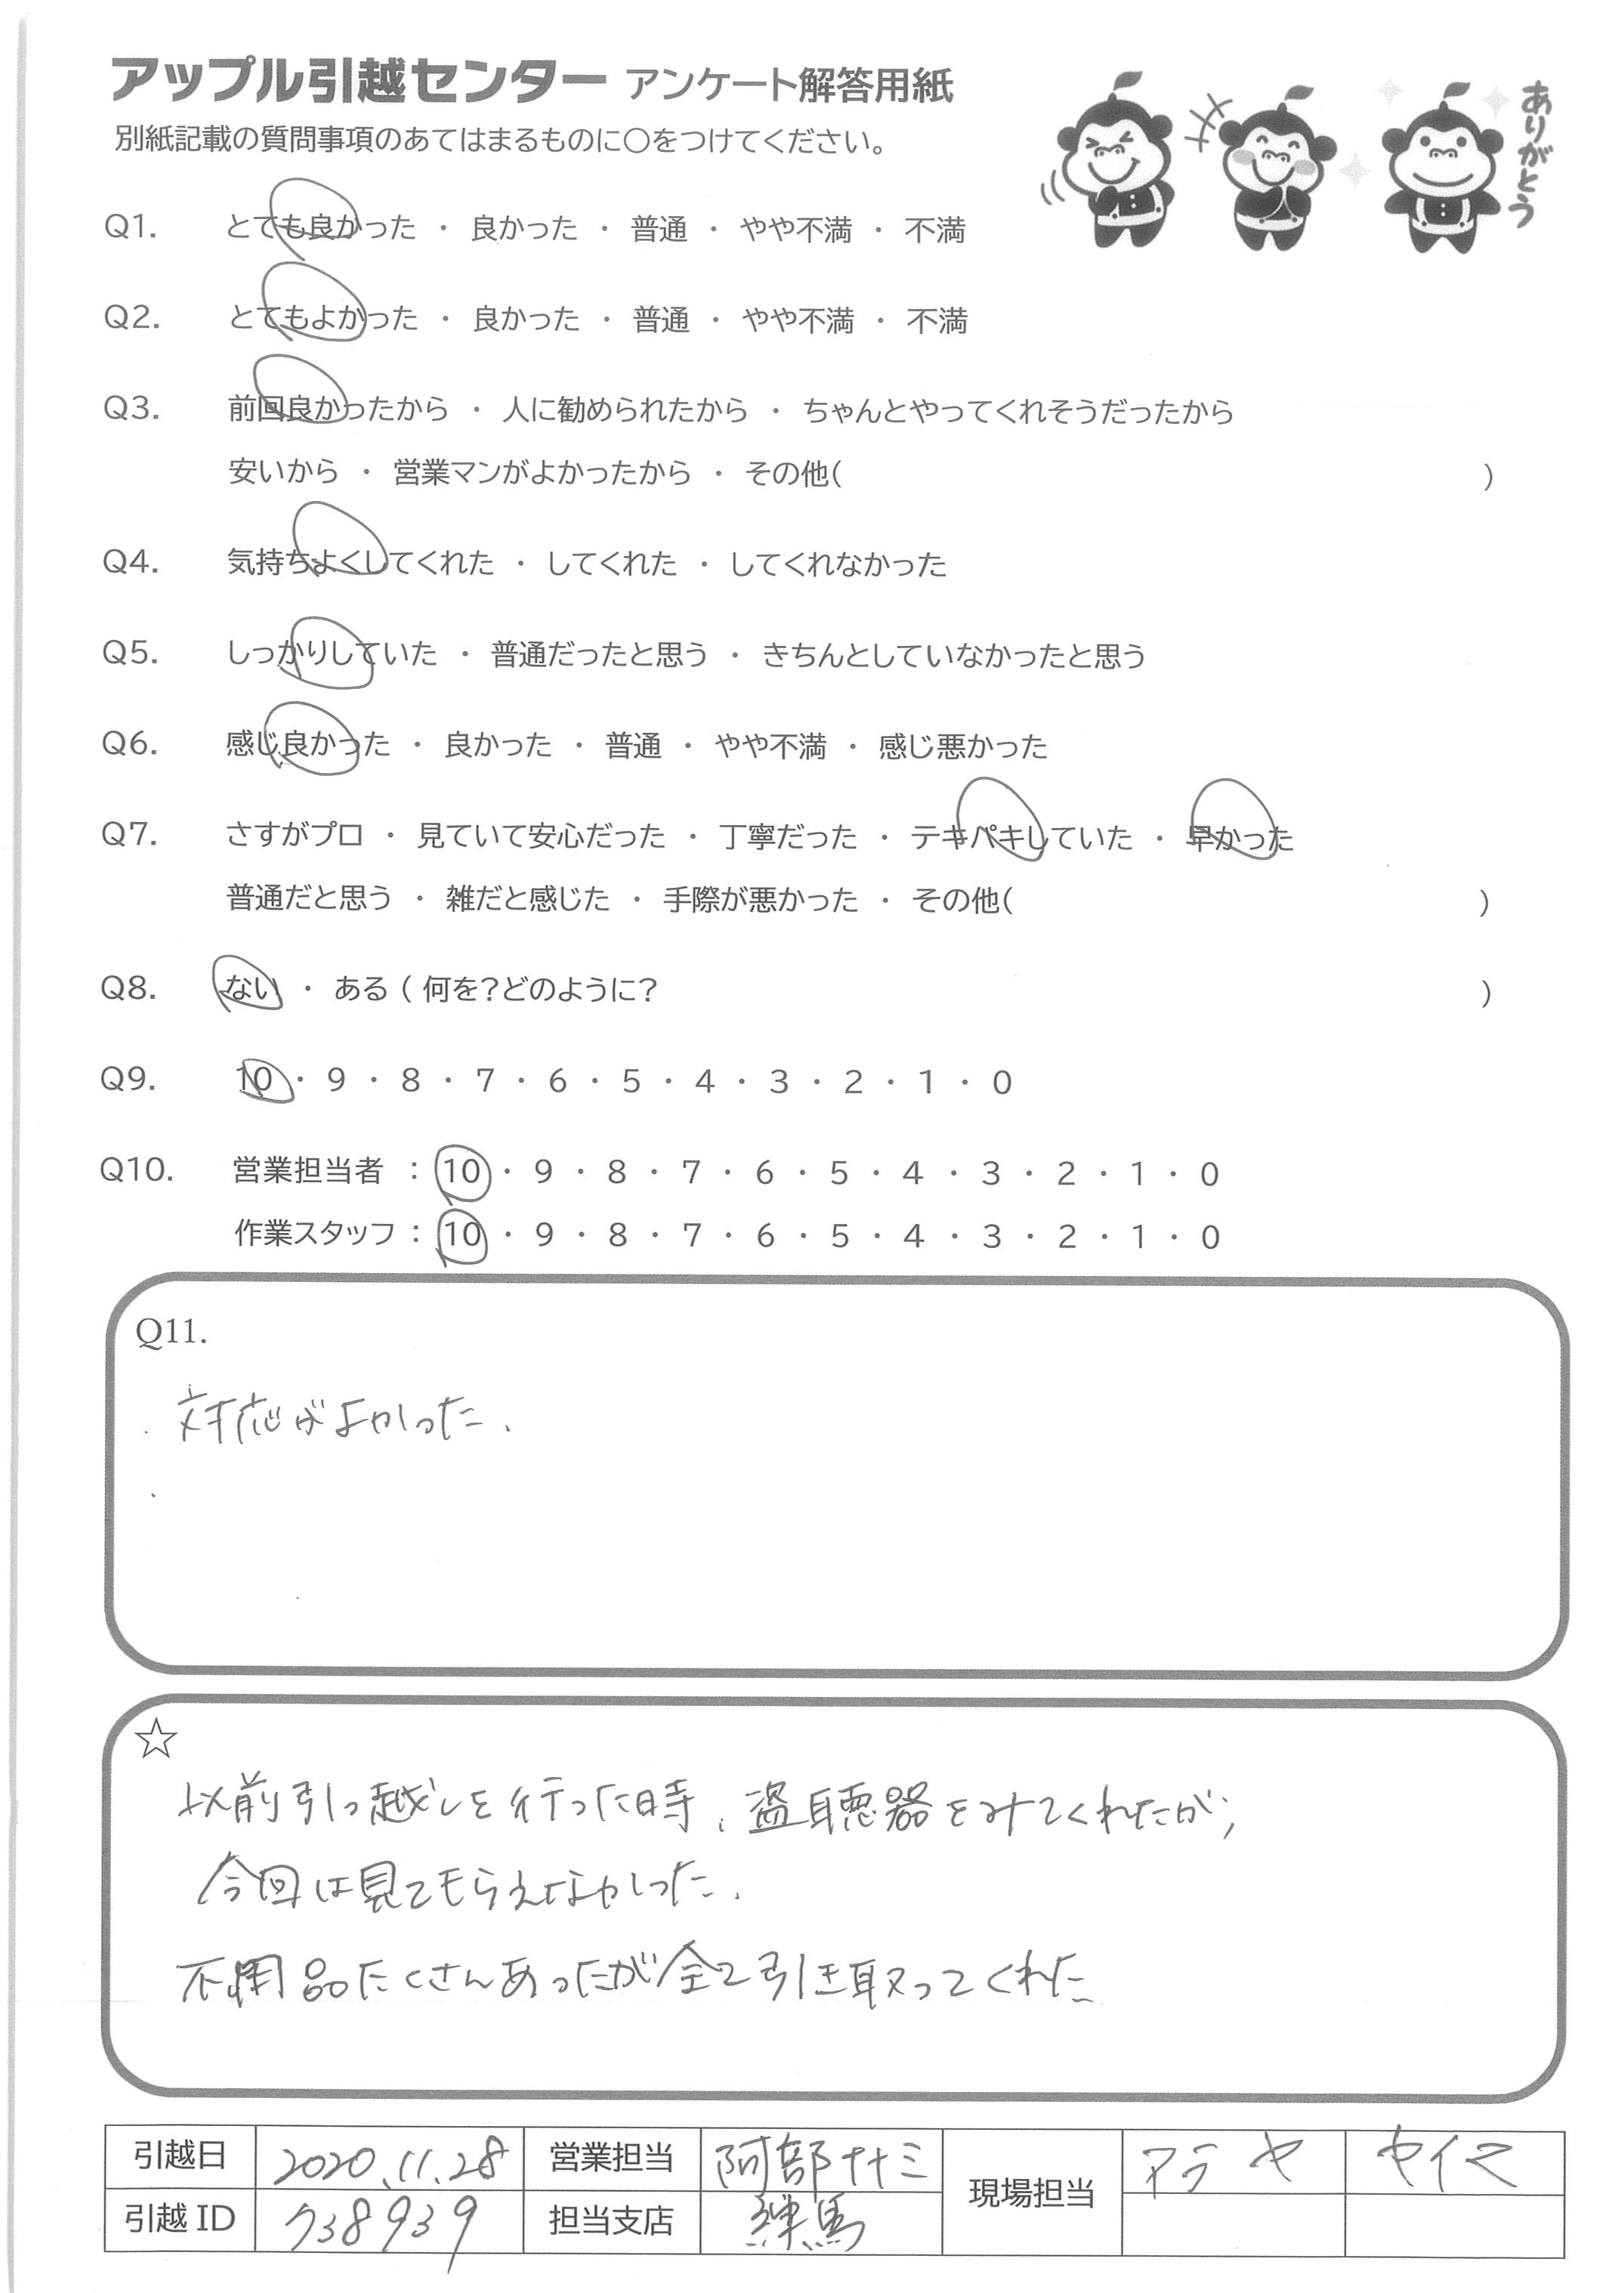 アップル引越センター アンケート解答用紙
別紙記載の質問事項のあてはまるものに○をつけてください。
ありがとう
Q1. とても良かった ・ 良かった ・ 普通 ・ やや不満 ・ 不満
Q2. とてもよかった ・ 良かった ・ 普通 ・ やや不満 ・ 不満
Q3. 前回良かったから ・ 人に勧められたから ・ ちゃんとやってくれそうだったから
安いから ・ 営業マンがよかったから ・ その他( )
Q4. 気持ちよくしてくれた ・ してくれた ・ してくれなかった
Q5. しっかりしていた ・ 普通だったと思う ・ きちんとしていなかったと思う
Q6. 感じ良かった ・ 良かった ・ 普通 ・ やや不満 ・ 感じ悪かった
Q7. さすがプロ ・ 見ていて安心だった ・ 丁寧だった ・ テキパキしていた ・ 早かった
普通だと思う ・ 雑だと感じた ・ 手際が悪かった ・ その他( )
Q8. ない ・ ある ( 何を?どのように? )
Q9. 10 ・ 9 ・ 8 ・ 7 ・ 6 ・ 5 ・ 4 ・ 3 ・ 2 ・ 1 ・ 0
Q10. 営業担当者 : 10 ・ 9 ・ 8 ・ 7 ・ 6 ・ 5 ・ 4 ・ 3 ・ 2 ・ 1 ・ 0
作業スタッフ : 10 ・ 9 ・ 8 ・ 7 ・ 6 ・ 5 ・ 4 ・ 3 ・ 2 ・ 1 ・ 0
Q11.
対応がよかった.
☆
以前引っ越しを行った時、盗聴器をみてくれたが,
今回は見てもらえなかった.
不用品たくさんあったが全て引き取ってくれた
引越日 2020.11.28 営業担当 阿部ナナミ 現場担当 アラヤ セイマ
引越 ID 738939 担当支店 練馬